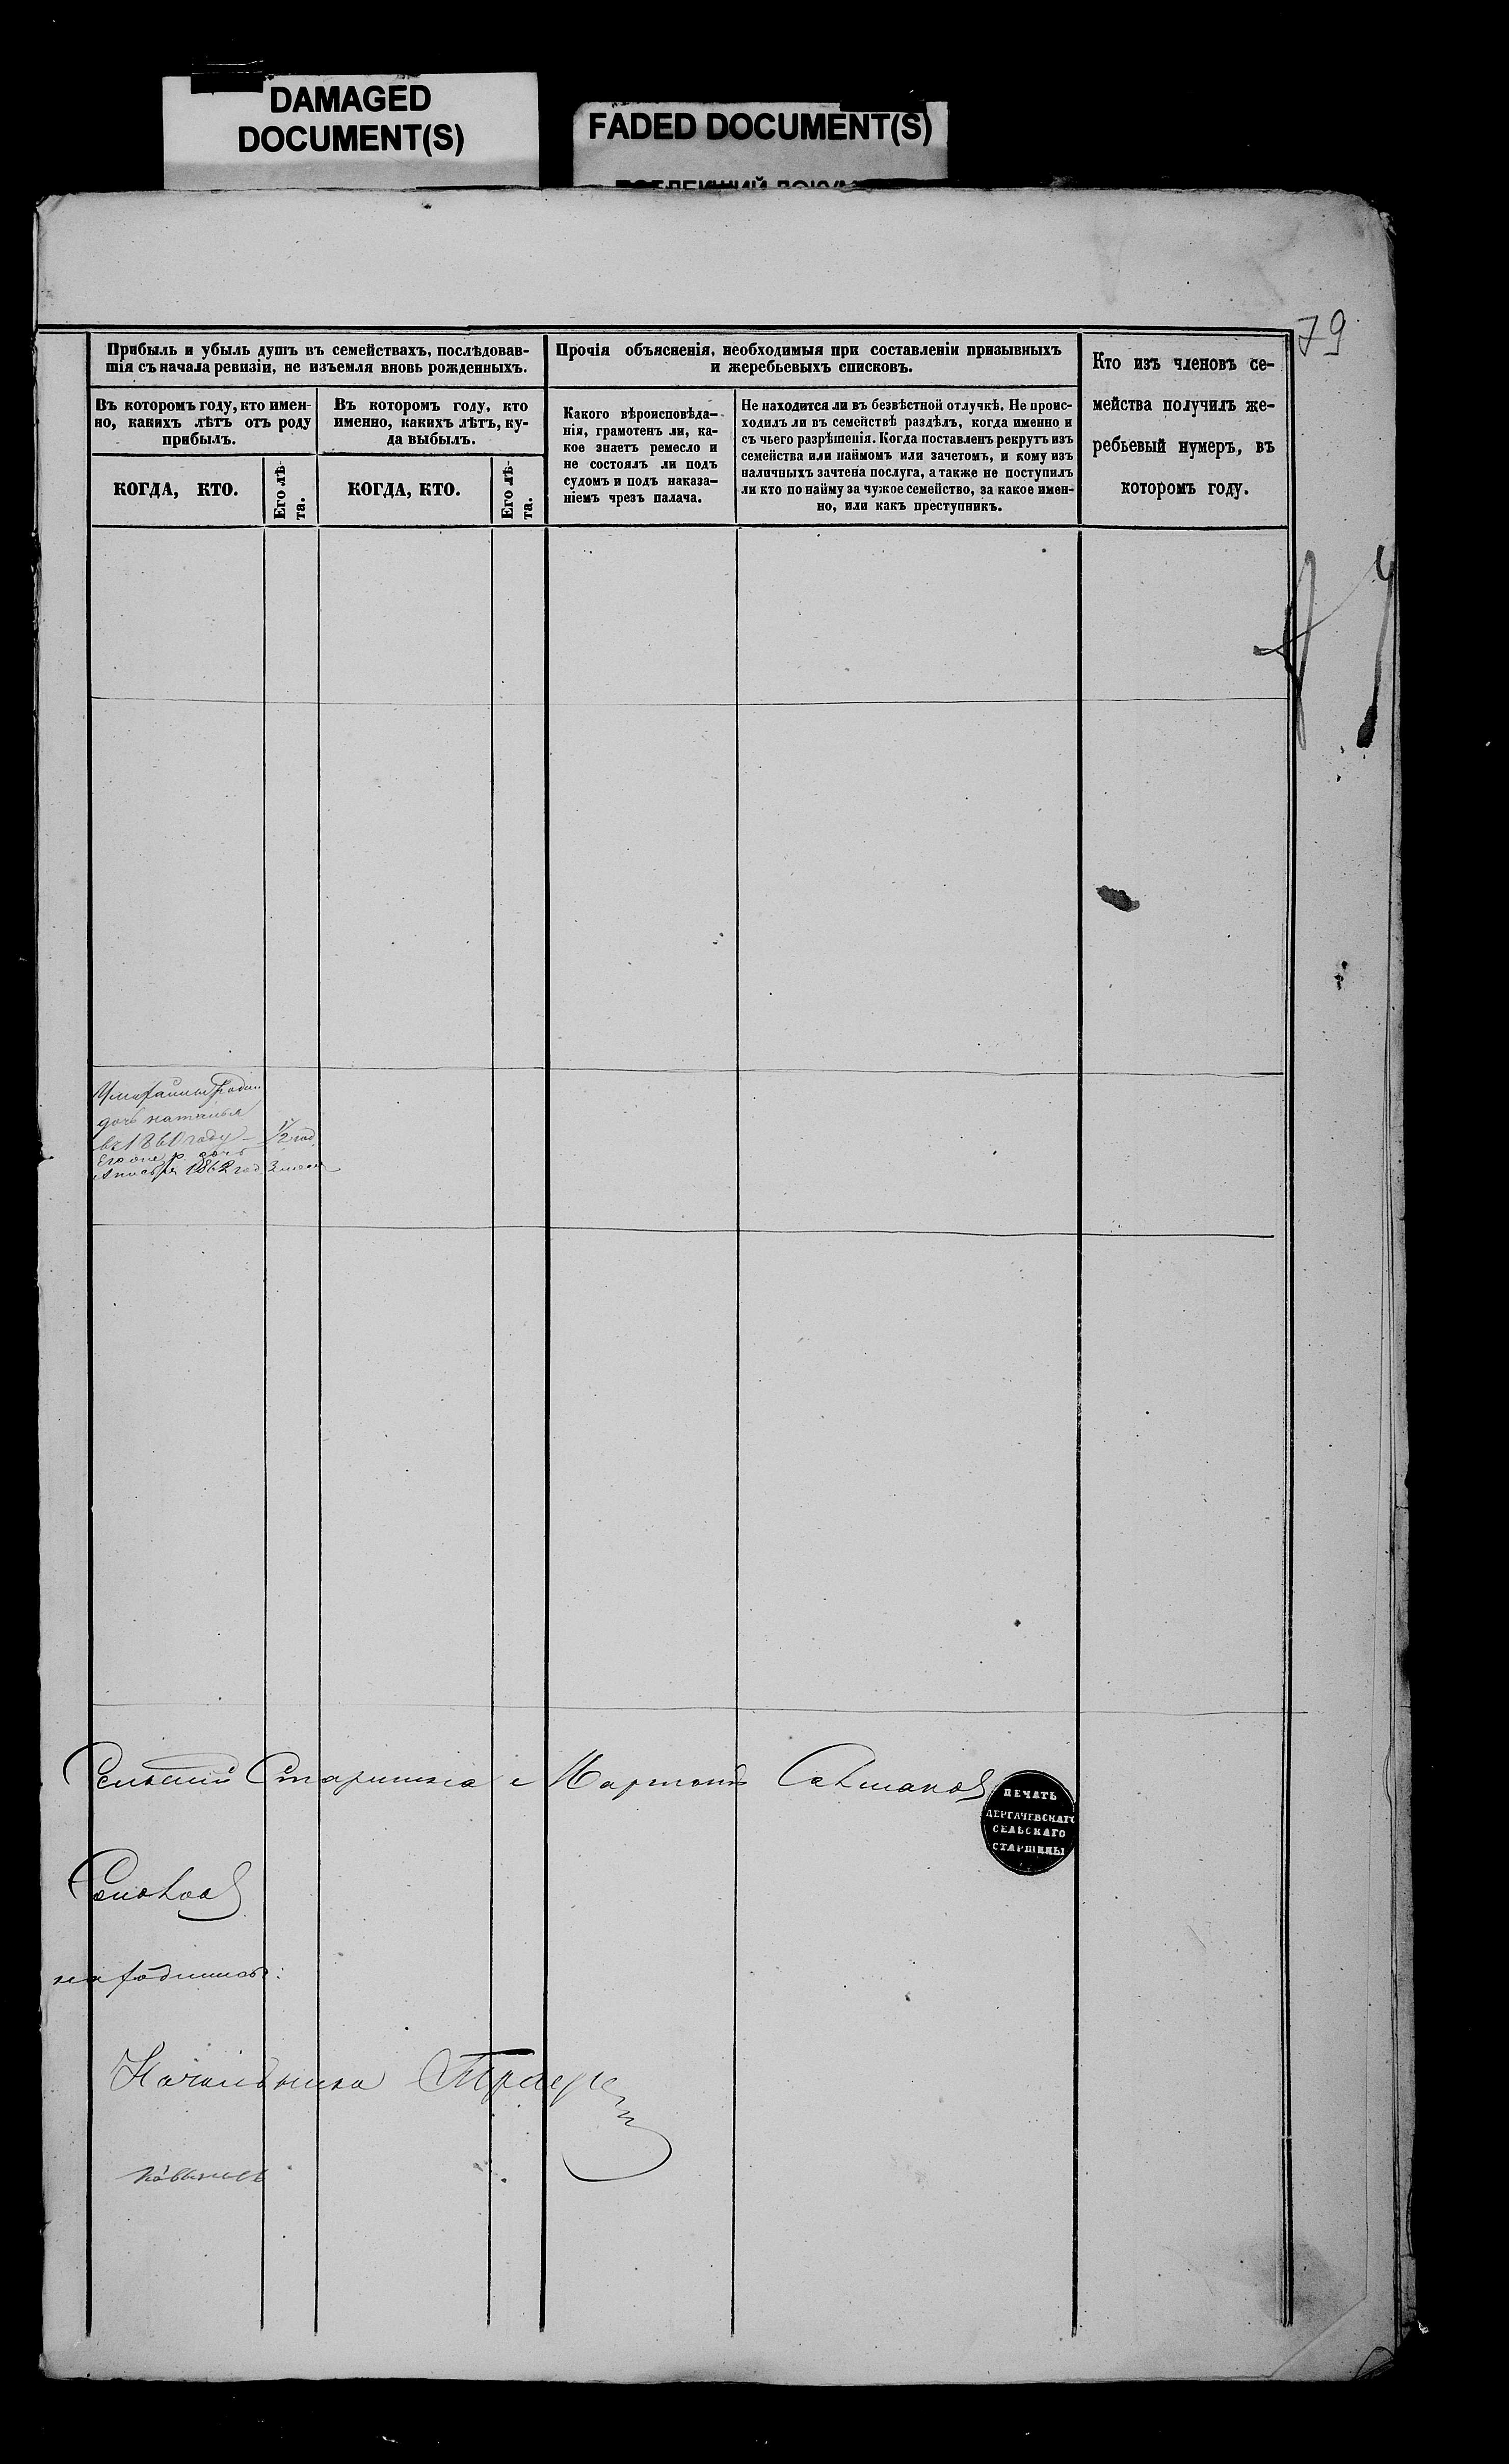 DAMAGED
DOCUMENT(S)
FADED DOCUMENT(S)
79
Прибыль и убыль душъ въ семействахъ, послѣдовав-
шія съ начала ревизіи, не изъемля вновь рожденныхъ.
Въ которомъ году, кто имен-
но, какихъ лѣтъ отъ роду
прибылъ.
КОГДА, КТО.
Его лѣ-
та.
Въ которомъ году, кто
именно, какихъ лѣтъ, ку-
да выбылъ.
КОГДА, КТО.
Его лѣ-
та.
Прочія объясненія, необходимыя при составленіи призывныхъ
и жеребьевыхъ списковъ.
Какого вѣроисповѣда-
нія, грамотенъ ли, ка-
кое знаетъ ремесло и
не состоялъ ли подъ
судомъ и подъ наказа-
ніемъ чрезъ палача.
Не находится ли въ безвѣстной отлучкѣ. Не проис-
ходилъ ли въ семействѣ раздѣлъ, когда именно и
съ чьего разрѣшенія. Когда поставленъ рекрутъ изъ
семейства или наймомъ или зачетомъ, и кому изъ
наличныхъ зачтена послуга, а также не поступилъ
ли кто по найму за чужое семейство, за какое имен-
но, или какъ преступникъ.
Кто изъ членовъ се-
мейства получилъ же-
ребьевый нумеръ, въ
которомъ году.
дочь
въ 1860 году 1/2 год
дочь
1862 год 3
Сельский Старшина
ПЕЧАТЬ
ДЕРГАЧЕВСКАГО
СЕЛЬСКАГО
СТАРШИНЫ